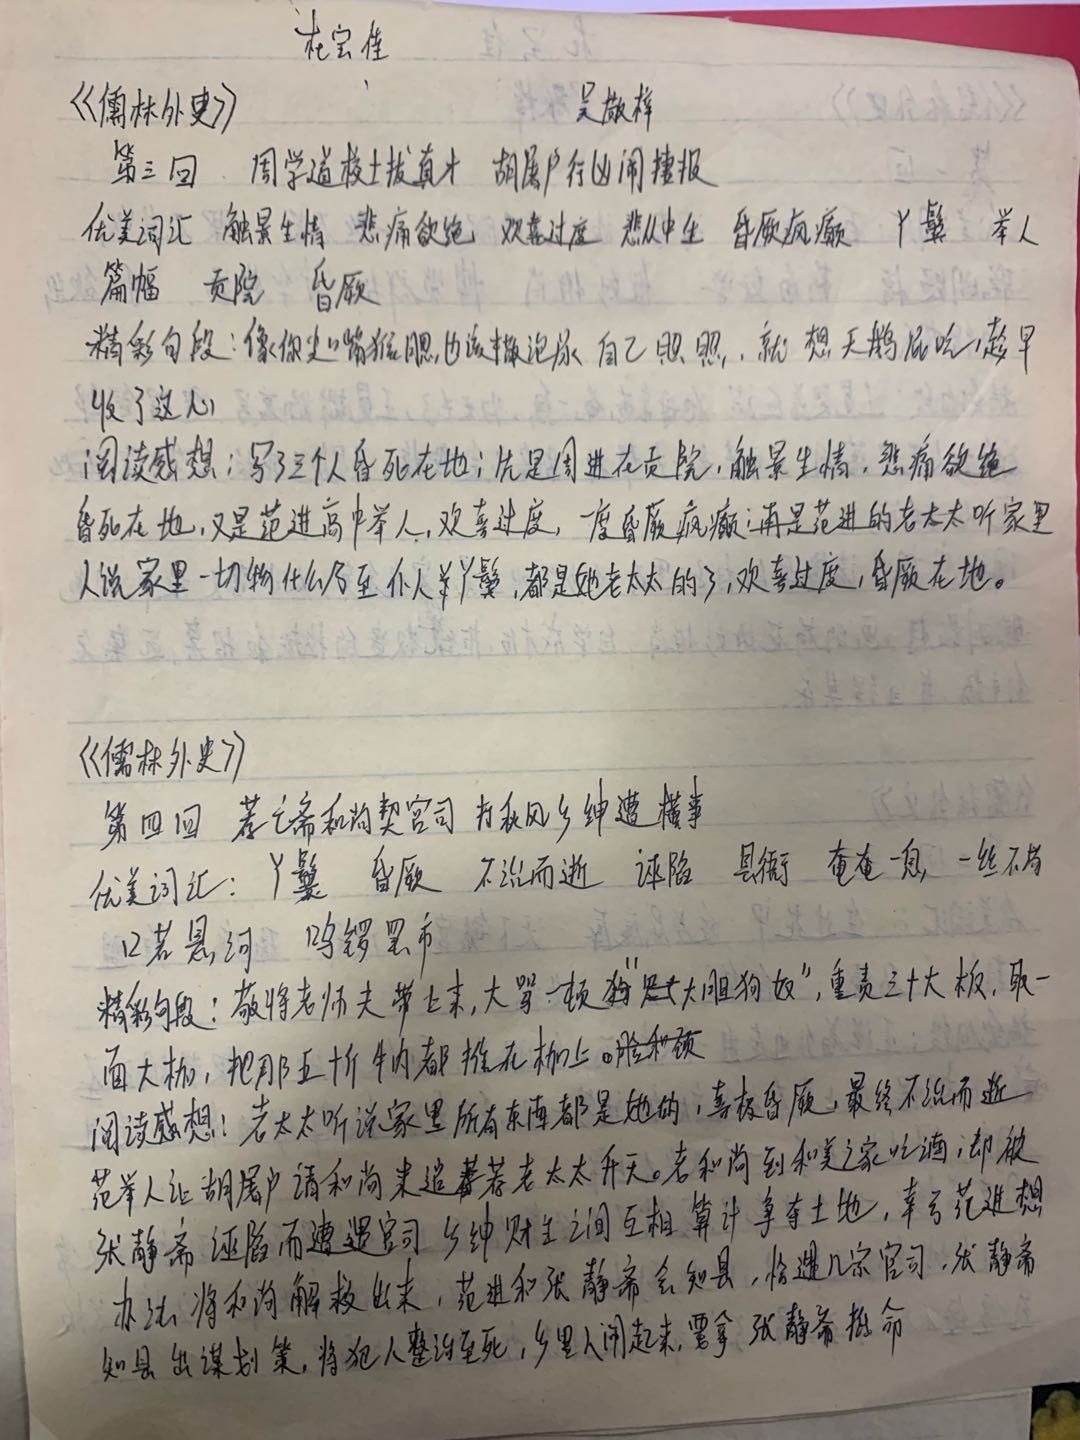 杜宝佳
《儒林外史》 吴敬梓
第三回 周学道校士拔真才 胡屠户行凶闹捷报
优美词汇 触景生情 悲痛欲绝 欢喜过度 悲从中生 昏厥疯癫 丫鬟 举人
篇幅 贡院 昏厥
精彩句段:像你尖嘴猴腮,也该撒泡尿自己照照,就想天鹅屁吃,趁早
收了这心
阅读感想:写了三个人昏死在地;先是周进在贡院,触景生情,悲痛欲绝
昏死在地,又是范进高中举人,欢喜过度,一度昏厥疯癫;再是范进的老太太听家里
人说家里一切物什乃至仆人丫鬟,都是她老太太的了,欢喜过度,昏厥在地。
《儒林外史》
第四回 荐亡斋和尚契官司 打秋风乡绅遭横事
优美词汇: 丫鬟 昏厥 不治而逝 诬陷 县衙 奄奄一息 一丝不苟
口若悬河 鸣锣罢市
精彩句段:敬将老师夫带上来,大骂一顿"大胆狗奴",重责三十大板,取一
面大枷,把那五十斤牛肉都堆在枷上。脸和颈
阅读感想:老太太听说家里所有东西都是她的,喜极昏厥,最终不治而逝
范举人让胡屠户请和尚来追荐老太太升天。老和尚到和美之家吃酒,却被
张静斋诬陷而遭遇官司 乡绅财主之间互相算计争夺土地,幸亏范进想
办法将和尚解救出来,范进和张静斋会知县,恰遇几宗官司,张静斋
知县出谋划策,将犯人整治至死,乡里人闹起来,要拿张静斋抵命